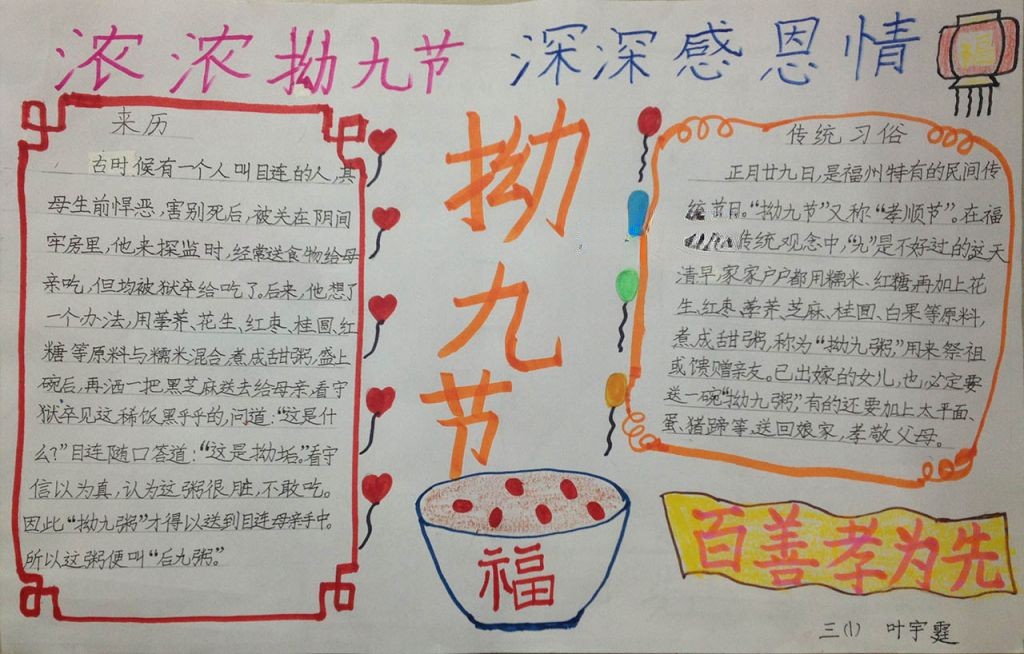 浓浓拗九节 深深感恩情
福
来历
古时候有一个人叫目连的人,其
母生前悍恶,害别死后,被关在阴间
牢房里,他来探监时,经常送食物给母
亲吃,但均被狱卒给吃了。后来,他想了
一个办法,用荸荠、花生、红枣、桂圆、红
糖等原料与糯米混合,煮成甜粥,盛上
碗后,再洒一把黑芝麻送去给母亲,看守
狱卒见这稀饭黑乎乎的,问道:“这是什
么?”目连随口答道:“这是拗垢。”看守
信以为真,认为这粥很脏,不敢吃。
因此“拗九粥”才得以送到目连母亲手中。
所以这粥便叫“后九粥。”
拗
九
节
福
传统习俗
正月廿九日,是福州特有的民间传
统节日。“拗九节”又称“孝顺节”。在福
传统观念中,“九”是不好过的这天
清早,家家户户都用糯米、红糖,再加上花
生、红枣、荸荠、芝麻、桂圆、白果等原料,
煮成甜粥,称为“拗九粥,”用来祭祖
或馈赠亲友。已出嫁的女儿,也必定要
送一碗“拗九粥,”有的还要加上太平面、
蛋、猪蹄等,送回娘家,孝敬父母。
百善孝为先
三(1) 叶宇霆